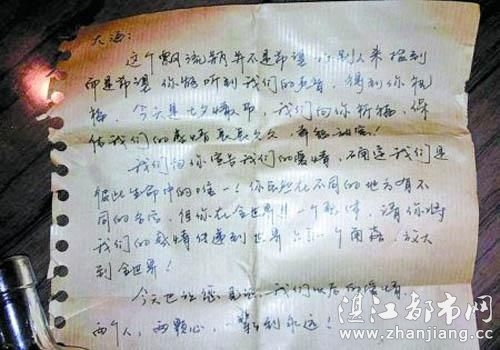 大海：
这个飘流瓶并不是希望 别人来捡到
而是希望你能听到我们的声音，得到你祝
福，今天是七夕情人节，我们向你祈福，保
佑我们的感情长长久久，幸福
我们向你宣告我们的爱情，确定我们是
彼此生命中的唯一！你虽然在不同的地方有不
同的名字，但你在全世界 一个整体，请你将
我们的感情传递到世界 每一个角落，放大
到全世界！
今天也让你见证，我们以后的爱情，
两个人，两颗心，一辈到永远！
湛江都市网
www.zhanjiang.cc